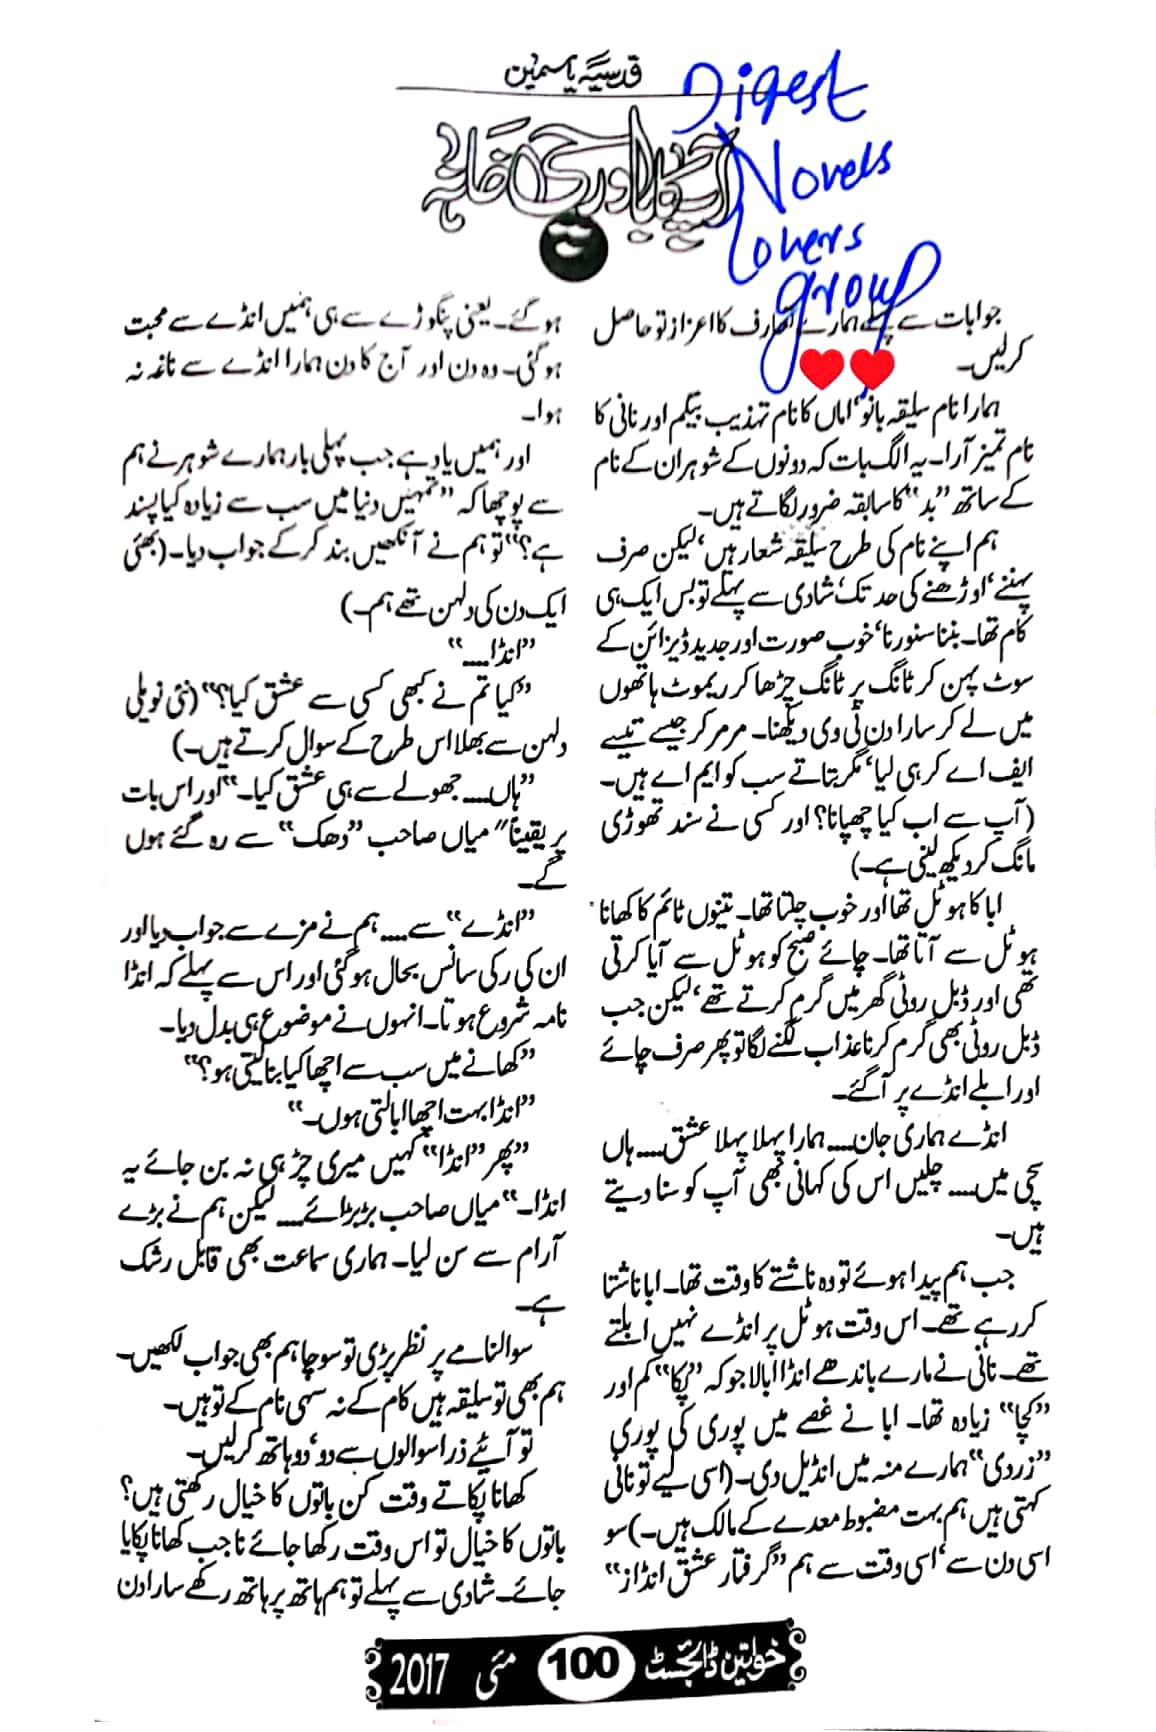 قدسیہ یاسمین
آپ کا باورچی خانہ
Digest
Novels
lovers
group
جوابات سے پہلے ہمارے تعارف کا اعزاز تو حاصل
کرلیں۔
ہمارا نام سلیقہ بانو، اماں کا نام تہذیب بیگم اور نانی کا
نام تمیز آرا۔ یہ الگ بات کہ دونوں کے شوہر ان کے نام
کے ساتھ ”بد“ کا سابقہ ضرور لگاتے ہیں۔
ہم اپنے نام کی طرح سلیقہ شعار ہیں، لیکن صرف
پہننے، اوڑھنے کی حد تک، شادی سے پہلے تو بس ایک ہی
کام تھا۔ بننا سنورنا، خوب صورت اور جدید ڈیزائن کے
سوٹ پہن کر ٹانگ پر ٹانگ چڑھا کر ریموٹ ہاتھوں
میں لے کر سارا دن ٹی وی دیکھنا۔ مر مر کر جیسے تیسے
ایف اے کر ہی لیا، مگر بتاتے سب کو ایم اے ہیں۔
(آپ سے اب کیا چھپانا؟ اور کسی نے سند تھوڑی
مانگ کر دیکھ لینی ہے۔)
ابا کا ہوٹل تھا اور خوب چلتا تھا۔ تینوں ٹائم کا کھانا
ہوٹل سے آتا تھا۔ چائے صبح کو ہوٹل سے آیا کرتی
تھی اور ڈبل روٹی گھر میں گرم کرتے تھے، لیکن جب
ڈبل روٹی بھی گرم کرنا عذاب لگنے لگا تو پھر صرف چائے
اور ابلے انڈے پر آگئے۔
انڈے ہماری جان.... ہمارا پہلا پہلا عشق.... ہاں
سچی میں.... چلیں اس کی کہانی بھی آپ کو سنا دیتے
ہیں۔
جب ہم پیدا ہوئے تو وہ ناشتے کا وقت تھا۔ ابا ناشتا
کر رہے تھے۔ اس وقت ہوٹل پر انڈے نہیں ابلتے
تھے۔ نانی نے مارے باندھے انڈا ابالا جو کہ ”پکا“ کم اور
”کچا“ زیادہ تھا۔ ابا نے غصے میں پوری کی پوری
”زردی“ ہمارے منہ میں انڈیل دی۔ (اسی لیے تو نانی
کہتی ہیں ہم بہت مضبوط معدے کے مالک ہیں۔) سو
اسی دن سے، اسی وقت سے ہم ”گرفتار عشق انڈاز“
ہوگئے۔ یعنی پنگوڑے سے ہی ہمیں انڈے سے محبت
ہوگئی۔ وہ دن اور آج کا دن ہمارا انڈے سے ناغہ نہ
ہوا۔
اور ہمیں یاد ہے جب پہلی بار ہمارے شوہر نے ہم
سے پوچھا کہ ”تمہیں دنیا میں سب سے زیادہ کیا پسند
ہے؟“ تو ہم نے آنکھیں بند کر کے جواب دیا۔ (بھئی
ایک دن کی دلہن تھے ہم۔)
”انڈا....“
”کیا تم نے کبھی کسی سے عشق کیا؟“ (نئی نویلی
دلہن سے بھلا اس طرح کے سوال کرتے ہیں۔)
”ہاں.... جھولے سے ہی عشق کیا۔“ اور اس بات
پر یقیناً میاں صاحب ”دھک“ سے رہ گئے ہوں
گے۔
”انڈے“ سے.... ہم نے مزے سے جواب دیا اور
ان کی رکی سانس بحال ہوگئی اور اس سے پہلے کہ انڈا
نامہ شروع ہوتا۔ انہوں نے موضوع ہی بدل دیا۔
”کھانے میں سب سے اچھا کیا بنا لیتی ہو؟“
”انڈا بہت اچھا ابالتی ہوں۔“
”پھر ”انڈا“ کہیں میری چڑ ہی نہ بن جائے یہ
انڈا۔“ میاں صاحب بڑبڑائے.... لیکن ہم نے بڑے
آرام سے سن لیا۔ ہماری سماعت بھی قابل رشک
ہے۔
سوالنامے پر نظر پڑی تو سوچا ہم بھی جواب لکھیں۔
ہم بھی تو سلیقہ ہیں کام کے نہ سہی نام کے تو ہیں۔
تو آئیے ذرا سوالوں سے دو، دو ہاتھ کرلیں۔
کھانا پکاتے وقت کن باتوں کا خیال رکھتی ہیں؟
باتوں کا خیال تو اس وقت رکھا جائے نا جب کھانا پکایا
جائے۔ شادی سے پہلے تو ہم ہاتھ پر ہاتھ رکھے سارا دن
خواتین ڈائجسٹ 100 مئی 2017